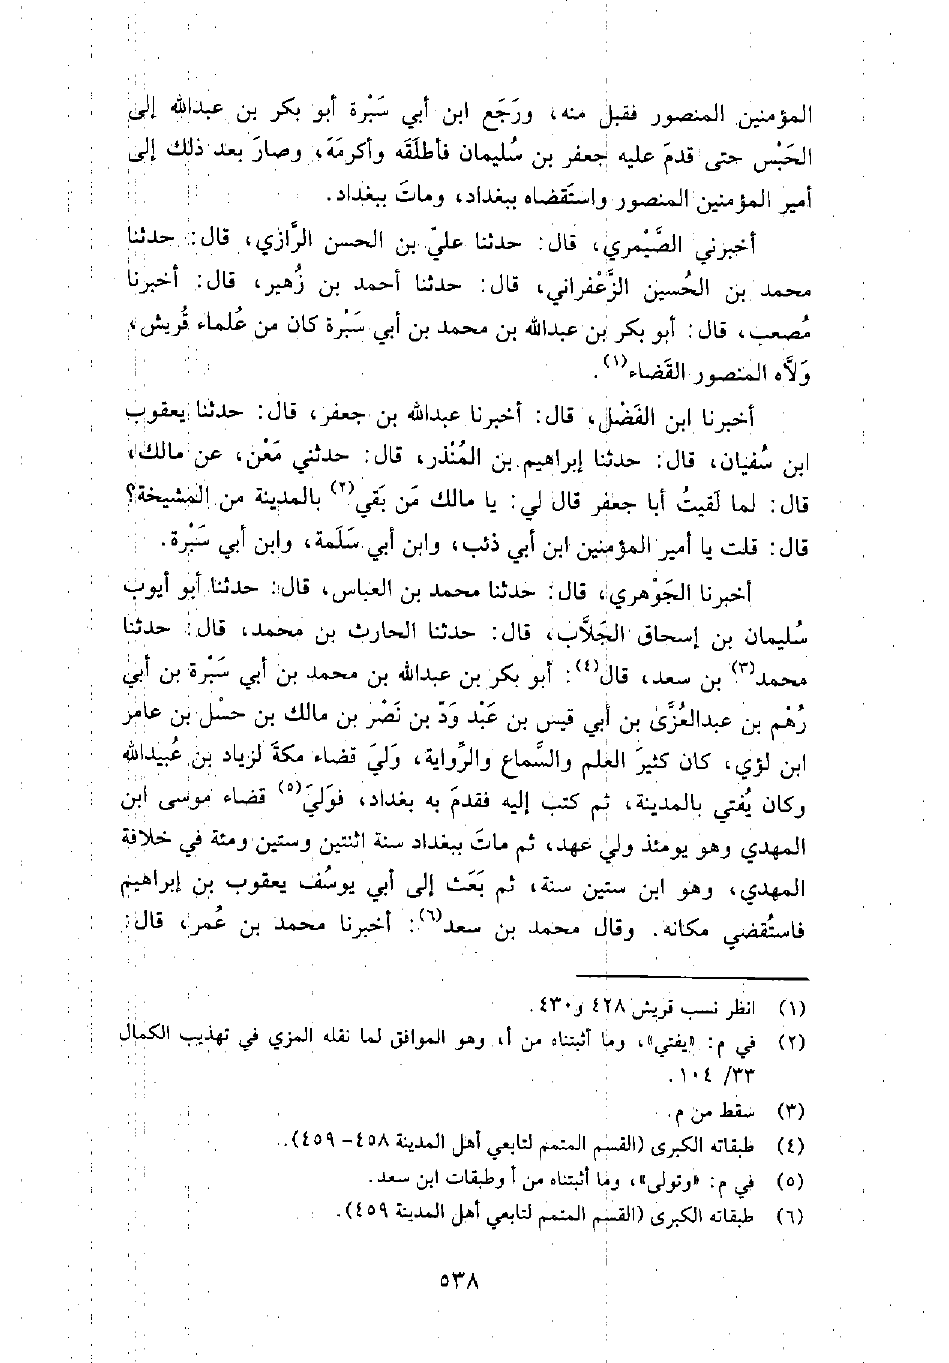 المؤمنين المنصور فقبل منه، ورَجَع ابن أبي سَبْرة أبو بكر بن عبدالله إلى
الحَبْس حتى قدمَ عليه جعفر بن سُليمان فأطلَقَه وأكرمَهَ، وصارَ بعد ذلك إلى
أمير المؤمنين المنصور واستَقضاه ببغداد، وماتَ ببغداد.
أخبرني الصَّيْمري، قال: حدثنا عليّ بن الحسن الرَّازي، قال: حدثنا
محمد بن الحُسين الزَّعْفراني، قال: حدثنا أحمد بن زُهير، قال: أخبرنا
مُصعب، قال: أبو بكر بن عبدالله بن محمد بن أبي سَبْرة كان من عُلماء قُريش،
وَلَّاه المنصور القَضاء(١).
أخبرنا ابن الفَضْل، قال: أخبرنا عبدالله بن جعفر، قال: حدثنا يعقوب
ابن سُفيان، قال: حدثنا إبراهيم بن المُنْذر، قال: حدثني مَعْن، عن مالك،
قال: لما لَقيتُ أبا جعفر قال لي: يا مالك مَن بَقي(٢) بالمدينة من المشيخة؟
قال: قلت يا أمير المؤمنين ابن أبي ذئب، وابن أبي سَلَمة، وابن أبي سَبْرة.
أخبرنا الجَوْهري، قال: حدثنا محمد بن العباس، قال: حدثنا أبو أيوب
سُليمان بن إسحاق الجَلَّاب، قال: حدثنا الحارث بن محمد، قال: حدثنا
محمد(٣) بن سعد، قال(٤): أبو بكر بن عبدالله بن محمد بن أبي سَبْرة بن أبي
رُهْم بن عبدالعُزَّى بن أبي قيس بن عَبْد وَدّ بن نَصْر بن مالك بن حسْل بن عامر
ابن لؤي، كان كثيرَ العلم والسَّماع والرِّواية، ولَيَ قضاء مكةَ لزياد بن عُبيدالله
وكان يُفتي بالمدينة، ثم كتب إليه فقدمَ به بغداد، فوَليَ(٥) قضاء موسى ابن
المهدي وهو يومئذ ولي عهد، ثم ماتَ ببغداد سنة اثنتين وستين ومئة في خلافة
المهدي، وهو ابن ستين سنة، ثم بَعَث إلى أبي يوسُف يعقوب بن إبراهيم
فاستُقضي مكانه. وقال محمد بن سعد(٦): أخبرنا محمد بن عُمر، قال:
(١) انظر نسب قريش ٤٢٨ و٤٣٠.
(٢) في م: «يفتي»، وما أثبتناه من أ، وهو الموافق لما نقله المزي في تهذيب الكمال
٣٣/ ١٠٤.
(٣) سقط من م.
(٤) طبقاته الكبرى (القسم المتمم لتابعي أهل المدينة ٤٥٨- ٤٥٩).
(٥) في م: «وتولى»، وما أثبتناه من أ وطبقات ابن سعد.
(٦) طبقاته الكبرى (القسم المتمم لتابعي أهل المدينة ٤٥٩).
٥٣٨